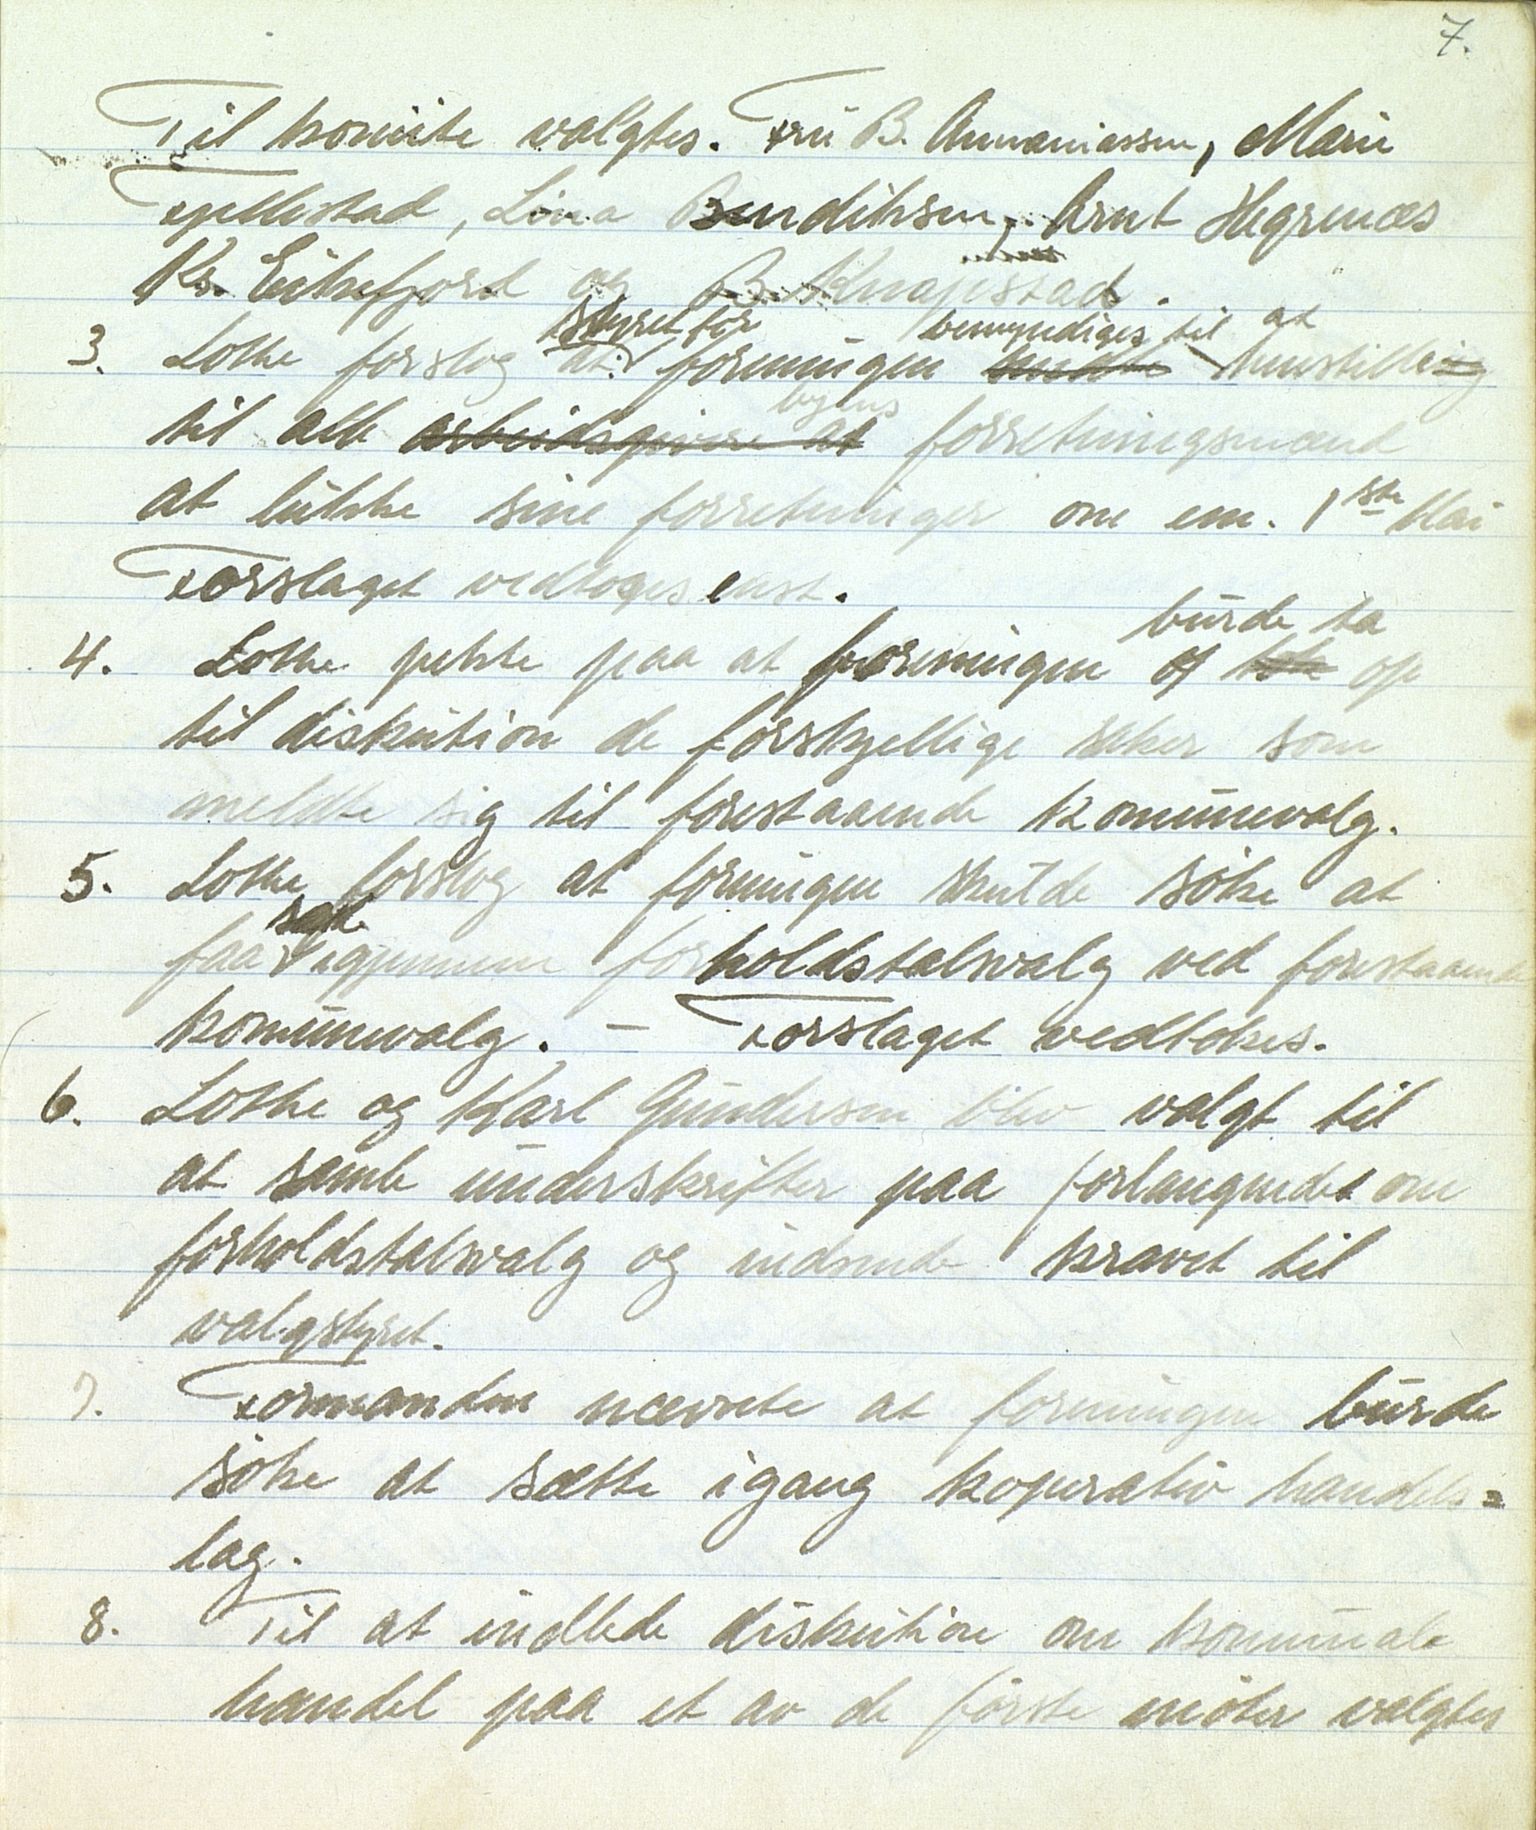 7.
Til komite valgtes. Fru B. Annaniassen, Marie
Fjellestad, Lina Bendiksen, Arnt Hegrenæs
Kr. Eikefjord og B. Knapstad.
3. Lothe forslog at styret for foreningen bemyndiges til at henstille
til alle arbeidsgivere at byens forretningsmænd
at lukke sine forretninger om em. 1ste Mai
Forslaget vedtoges enst.
4. Lothe pekte paa at foreningen burde ta op
til diskution de forskjellige saker som
meldte sig til forestaaende komunevalg.
5. Lothe forslog at foreningen skulde søke at
faa sat igjennem forholdstalsvalg ved forestaaende
komunevalg. – Forslaget vedtokes.
6. Lothe og Karl Gundersen blev valgt til
at samle underskrifter paa forlangendet om
forholdstalsvalg og indsende kravet til
valgstyret.
7. Formanden nævnte at foreningen burde
søke at sætte igang koperativ handels=
lag.
8. Til at indlede diskution om komunale
handel paa et av de første møter valgtes